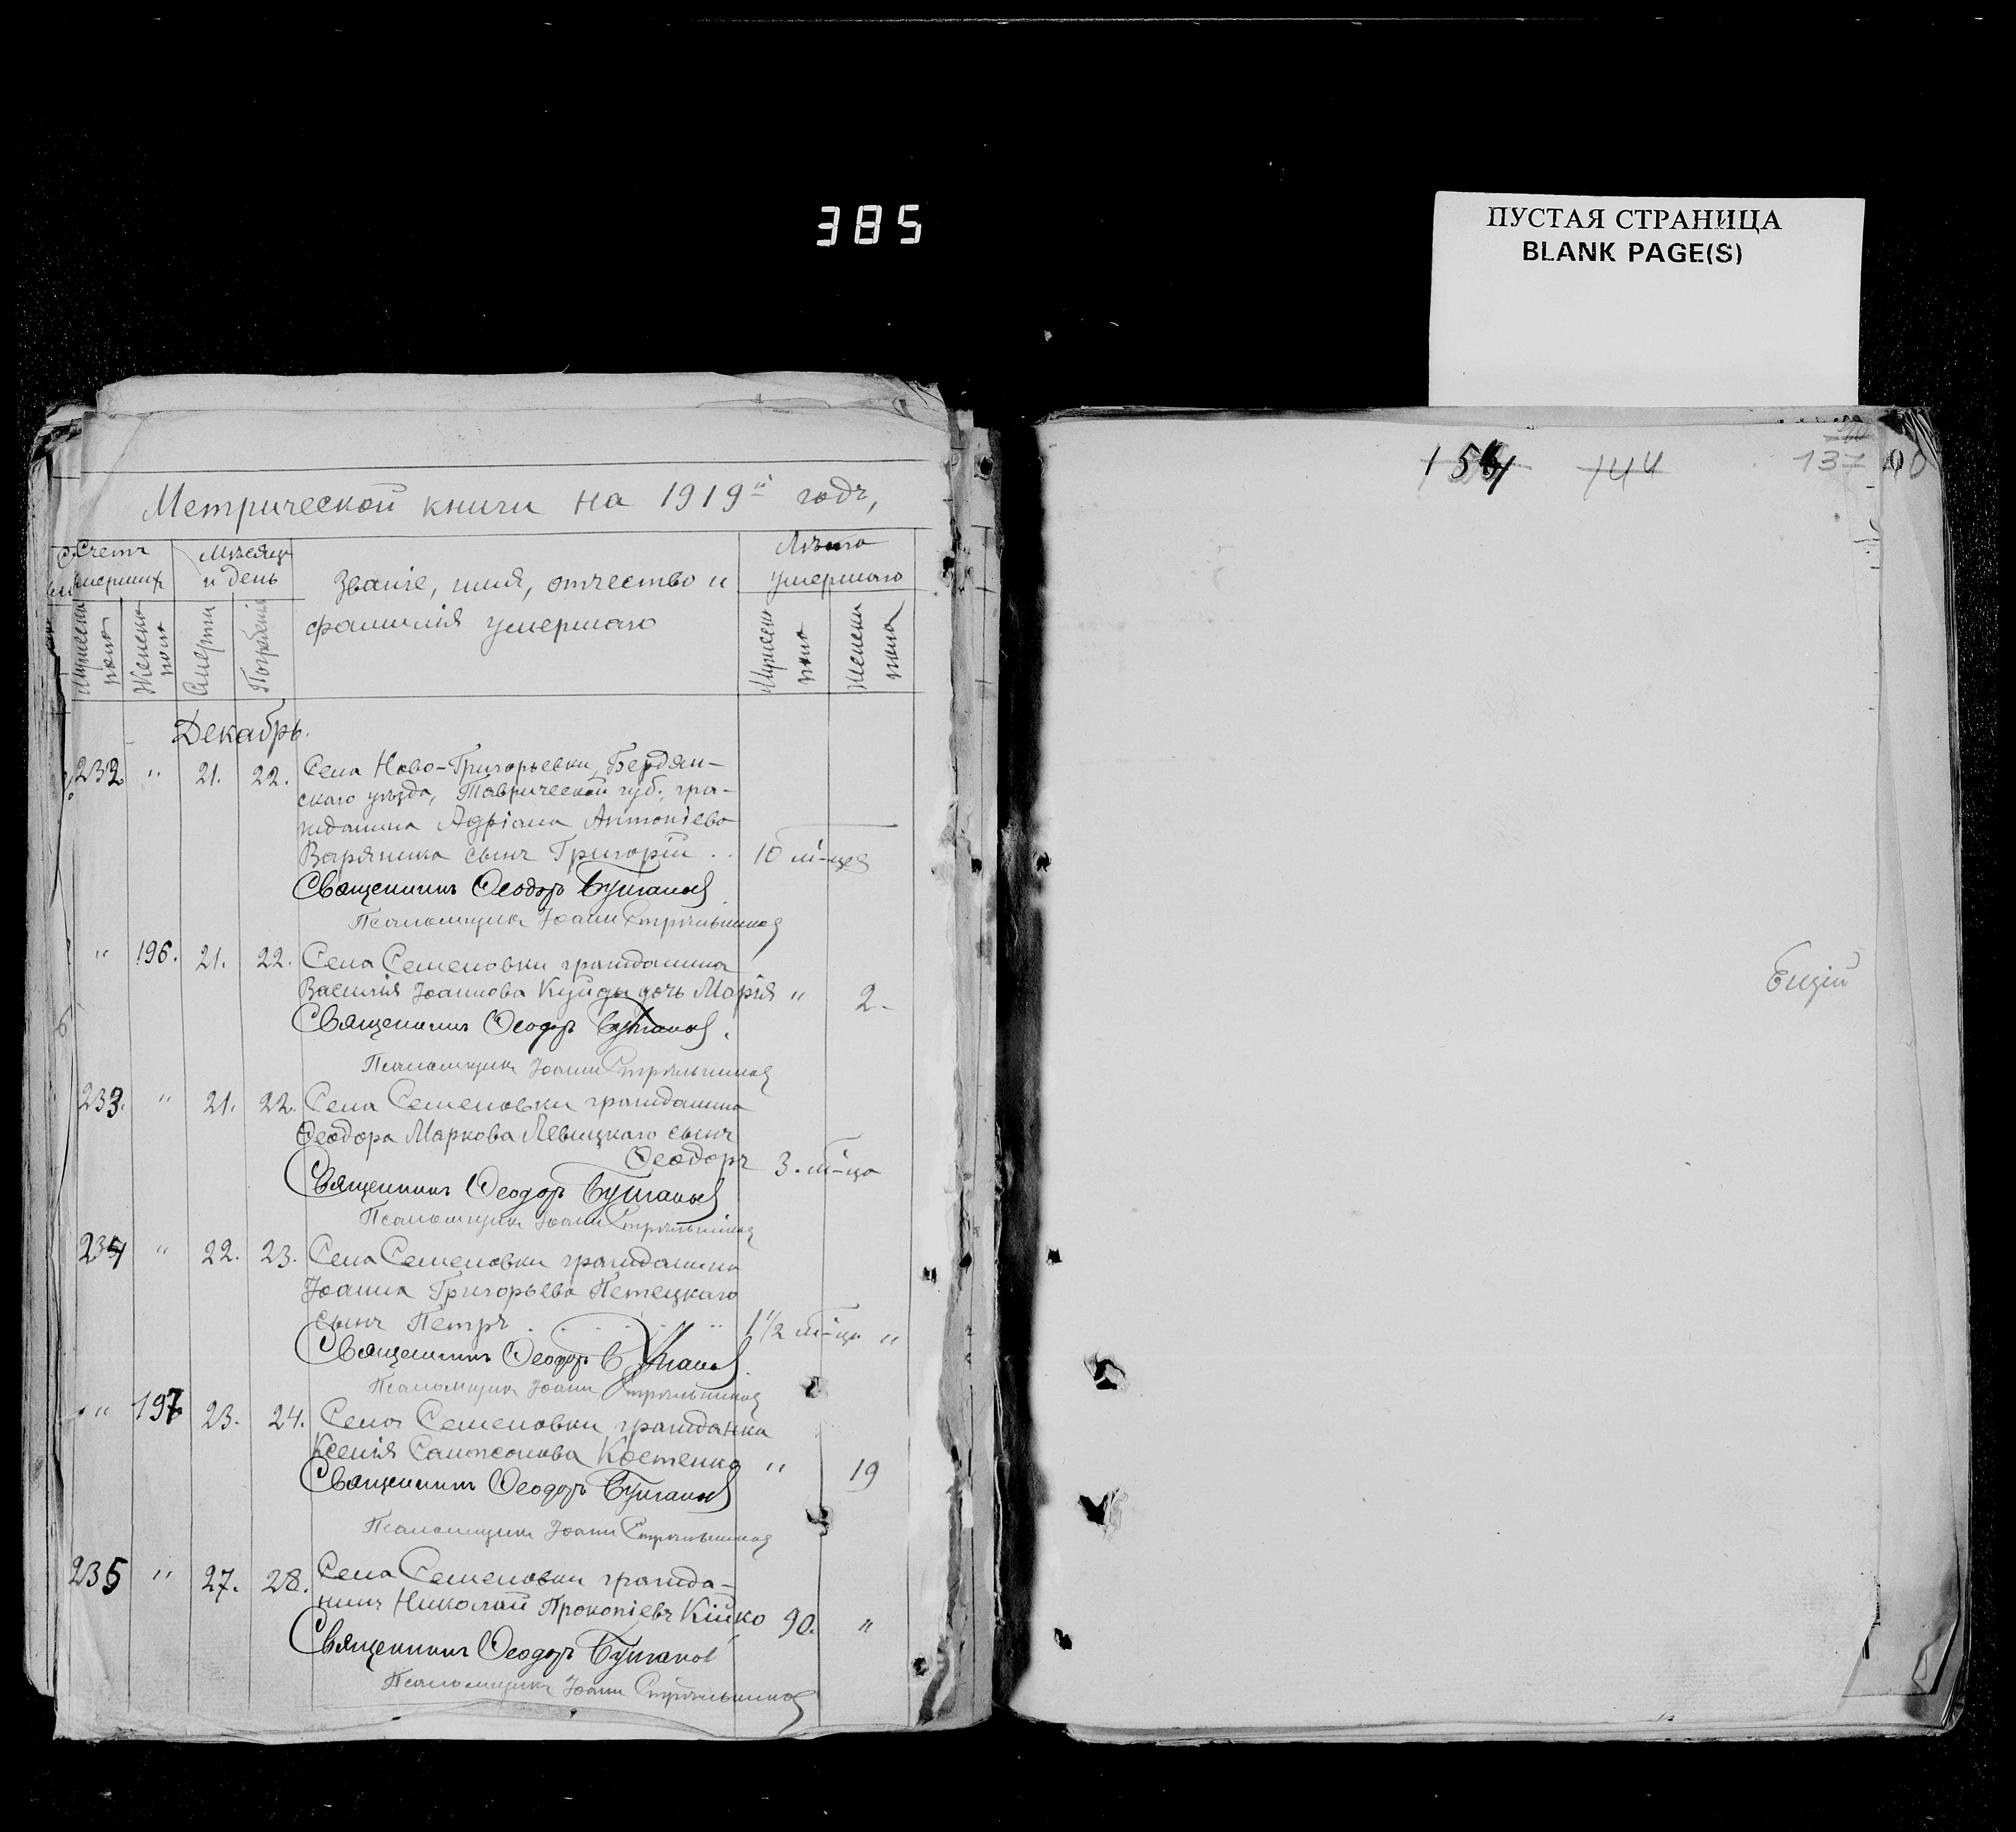 385
ПУСТАЯ СТРАНИЦА
BLANK PAGE(S)
Метрической книги на 1919й годъ,
Счетъ умершихъ
Мужеска пола
Женска пола
Мѣсяцъ и день
Смерти
Погребенія
Званіе, имя, отчество и
фамилія умершаго
Лѣта умершаго
Мужеск. пола
Женска пола
Декабрь.
232 " 21. 22. Села Ново-Григорьевки, Бердян-
скаго уѣзда, Таврической губ., гра-
жданина Адріана Антоніева
Варяника сынъ Григорій .. 10 м-цев
Священникъ Ѳеодоръ
Псаломщикъ Іоаннъ Стрѣльниковъ
" 196. 21. 22. Села Семеновки гражданина
Василія Іоаннова Куйды дочь Марія " 2-
Священникъ Ѳеодоръ
Псаломщикъ Іоаннъ Стрѣльниковъ
233. " 21. 22. Села Семеновки гражданина
Ѳеодора Маркова Левицкаго сынъ
Ѳеодоръ 3. м-ца
Священникъ Ѳеодоръ
Псаломщикъ Іоаннъ Стрѣльниковъ
234 " 22. 23. Села Семеновки гражданина
Іоанна Григорьева Петецкаго
сынъ Петръ 1 1/2 м-ца "
Священникъ Ѳеодоръ
Псаломщикъ Іоаннъ Стрѣльниковъ
" 197 23. 24. Села Семеновки гражданка
Ксенія Сампсонова Костенко " 19
Священникъ Ѳеодоръ
Псаломщикъ Іоаннъ Стрѣльниковъ
235 " 27. 28. Села Семеновки гражда-
нинъ Николай Прокопіевъ Кійко 90. "
Священникъ Ѳеодоръ
Псаломщикъ Іоаннъ Стрѣльниковъ
154 144 137